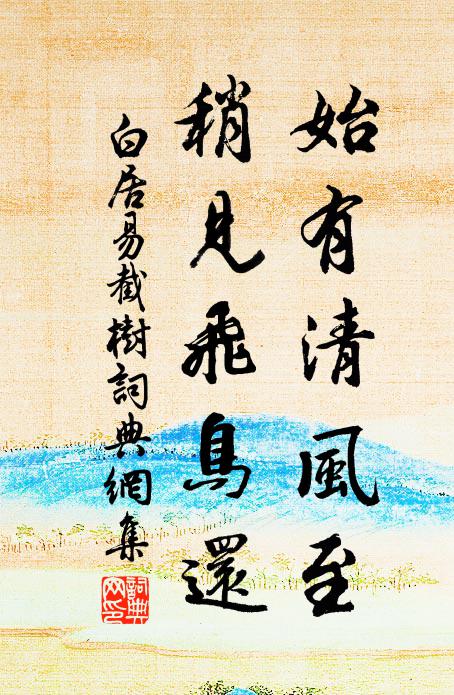 始有清風至
稍見飛鳥還
白居易截樹詞典網集
詞典